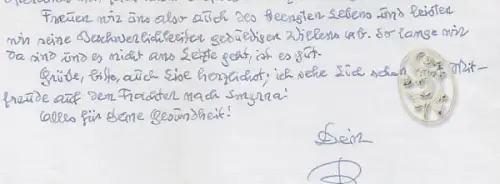 Freuen wir uns also auch des Beengten Lebens und leisten
wir seine Beschwerlichkeiten geduldigen Willens ab. So lange wir
da sind und es nicht ans Letzte geht, ist es gut.
Grüße, bitte, auch Lise herzlichst, ich sehe Dich schon mit
freude auf dem Frachter nach Smyrna!
Alles für Deine Gesundheit!
Dein